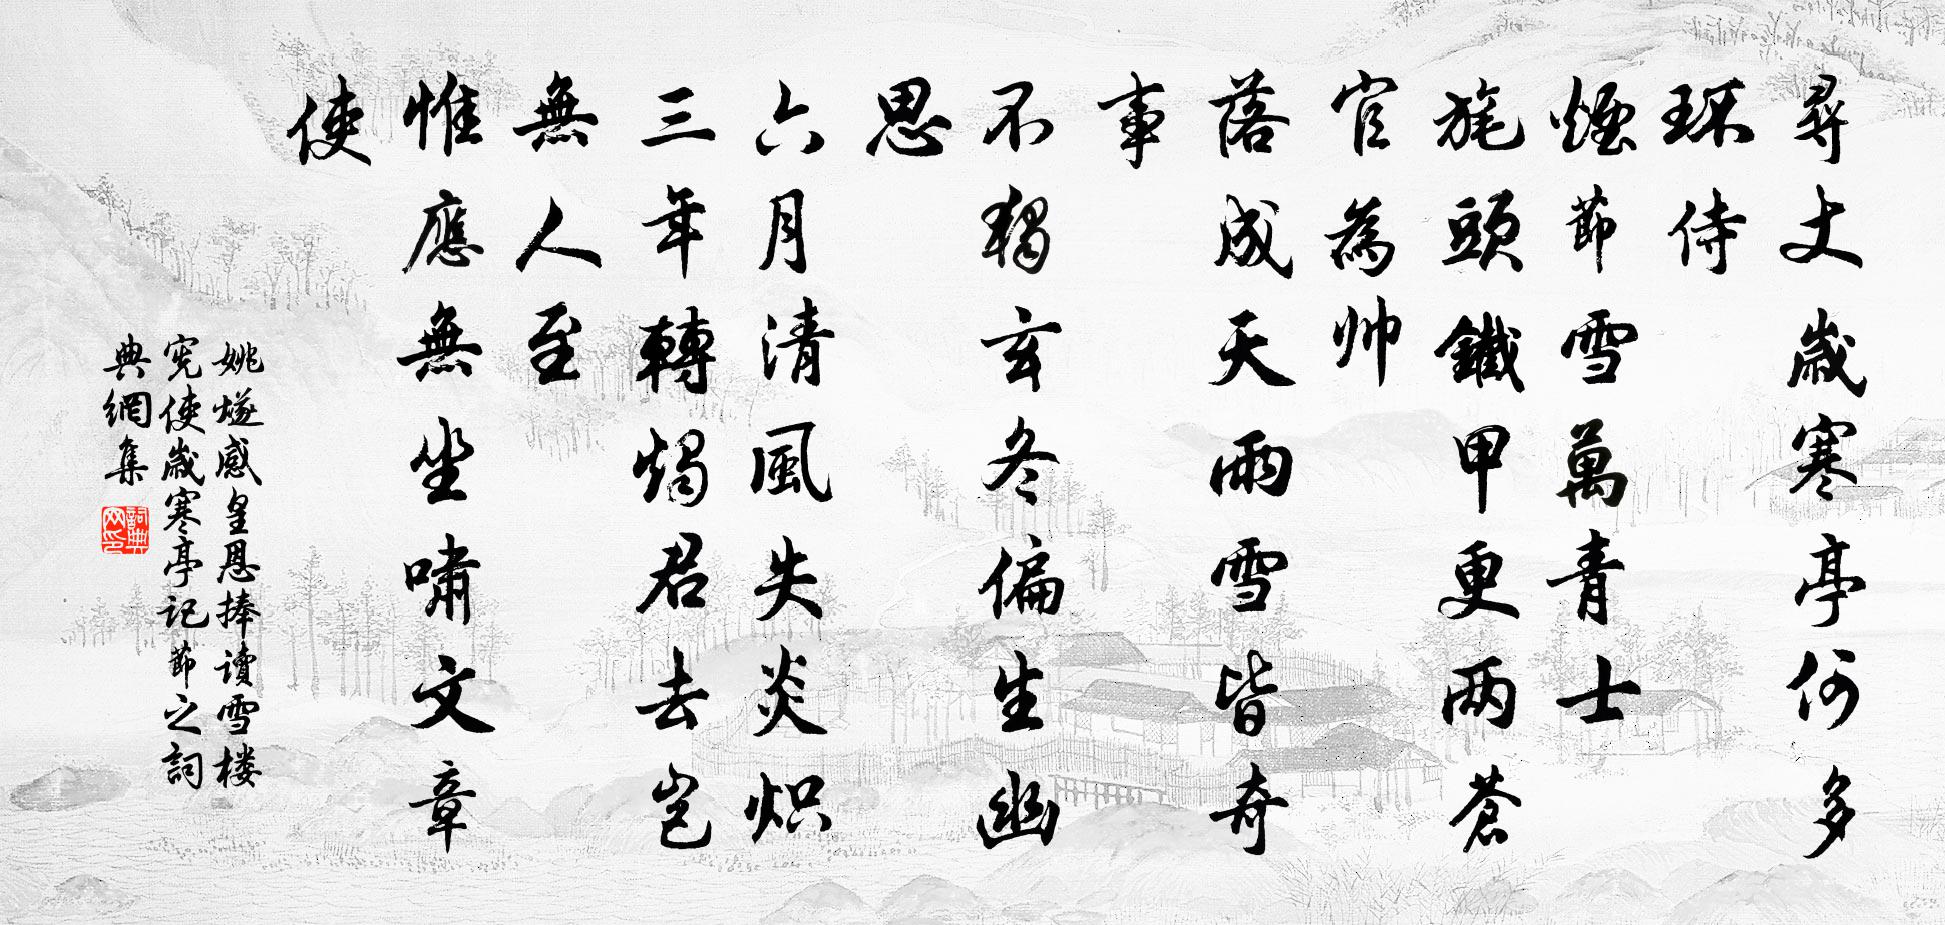 尋丈歲寒亭何多
环侍
煙節雪萬青士
旄頭鐵甲更两蒼
官為帅
落成天雨雪皆奇
事
不獨玄冬偏生幽
思
六月清風失炎炽
三年轉燭君去豈
無人至
惟應無坐嘯文章
使
姚燧感皇恩捧读雪楼
宪使歲寒亭记節之詞
典網集
詞典
网印